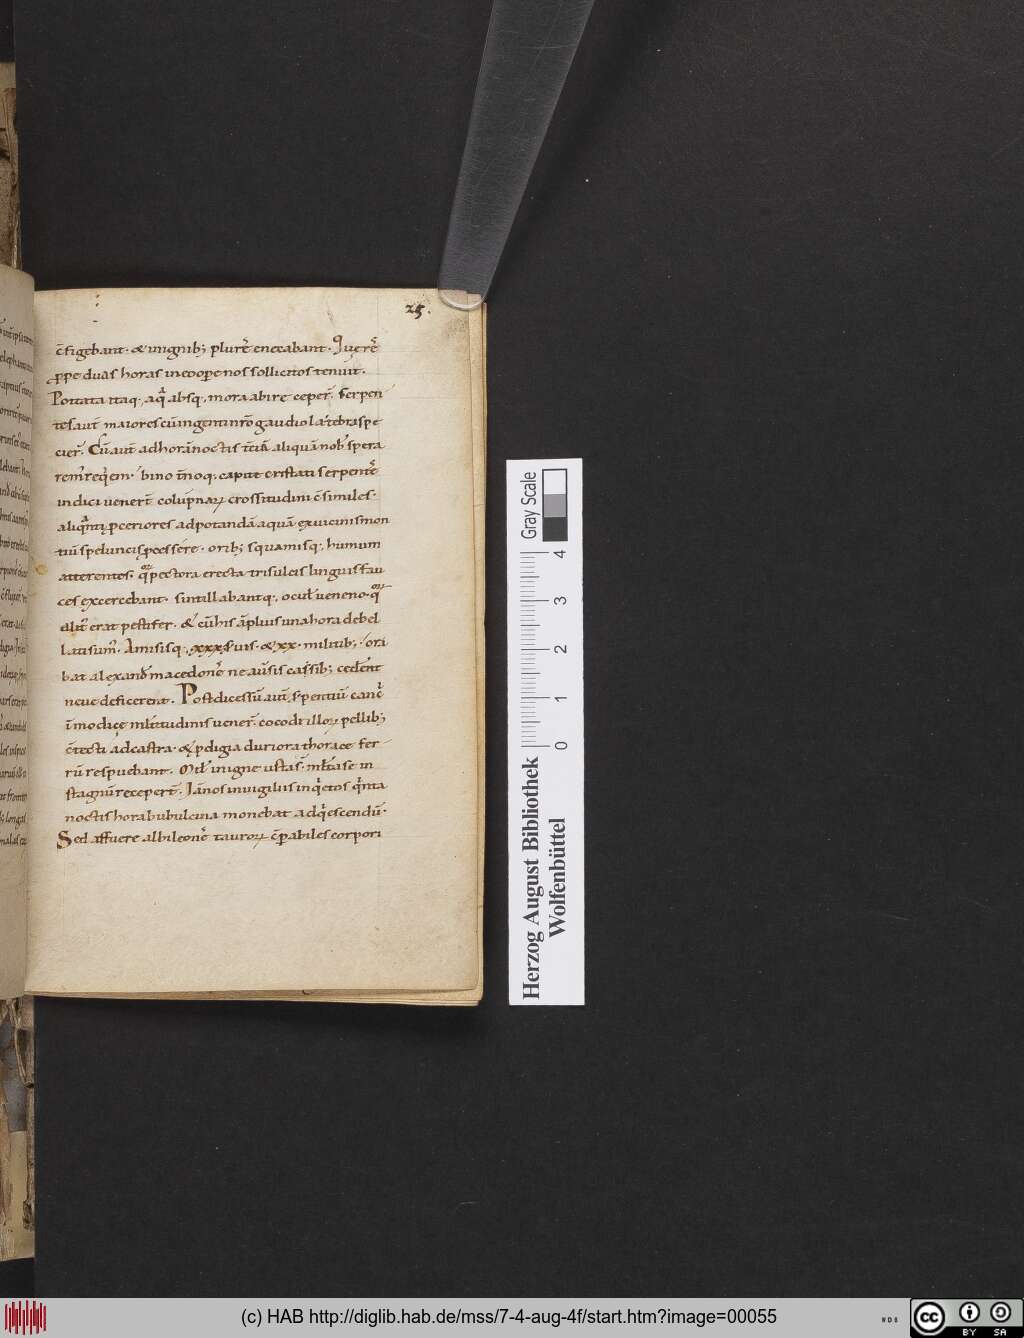 25.
c̄figebant. & in ignib; plurē enecabant. Que rē
ꝑpe duas horas in eo oꝑe nos sollicitos tenuit.
Pottata itaq. aq̄ absq. mora abire ceper̄. Serpen
tes aut̄ maiores cū ingenti nr̄o gaudio latebras pe
cier̄. Cū aut̄ ad horā noctis t̄ciā aliquā nob̄ spera
rem̄ req̄em. bino t̄noq. capite cristati serpentē
indici uener̄t colūpnaꝝ crossitudini c̄similes.
aliq̄ntꝰ ꝓceriores ad potandā aquā ex uicinis mon
tiū speluncis ꝓcessere. orib; squamisq. humum
atterentes. qͦꝝ pectora erecta trisulcis linguis fau
ces exercebant. sintillabantq. ocul̄ ueneno. qͦꝝ
alit̄ erat pestifer. & cū his āplius una hora debel
latisum̄. Amisisq. xxx. suis. & xx. militib;. ori
bat alexand̄ macedonē ne aūsis casib; ced̄ent
neue deficerent. Post dicessū aut̄ s̄pentiū canc̄
īmodicę mltitudinis uener̄. cocodrilloꝝ pellib;
c̄tecti ad castra. & ꝓdigia duriora thorace fer
rū respuebant. Mul̄ in igne ustas. mltase in
stagnū receper̄t. Iā nos in uigiliis inq̄etos q̄nta
noctis hora bubulcina monebat adq̄escendū.
Sed affuere albi leonē tauroꝝ c̄ꝑabiles corpori
Gray Scale
0 1 2 3 4
Herzog August Bibliothek
Wolfenbüttel
(c) HAB http://diglib.hab.de/mss/7-4-aug-4f/start.htm?image=00055
cc BY SA